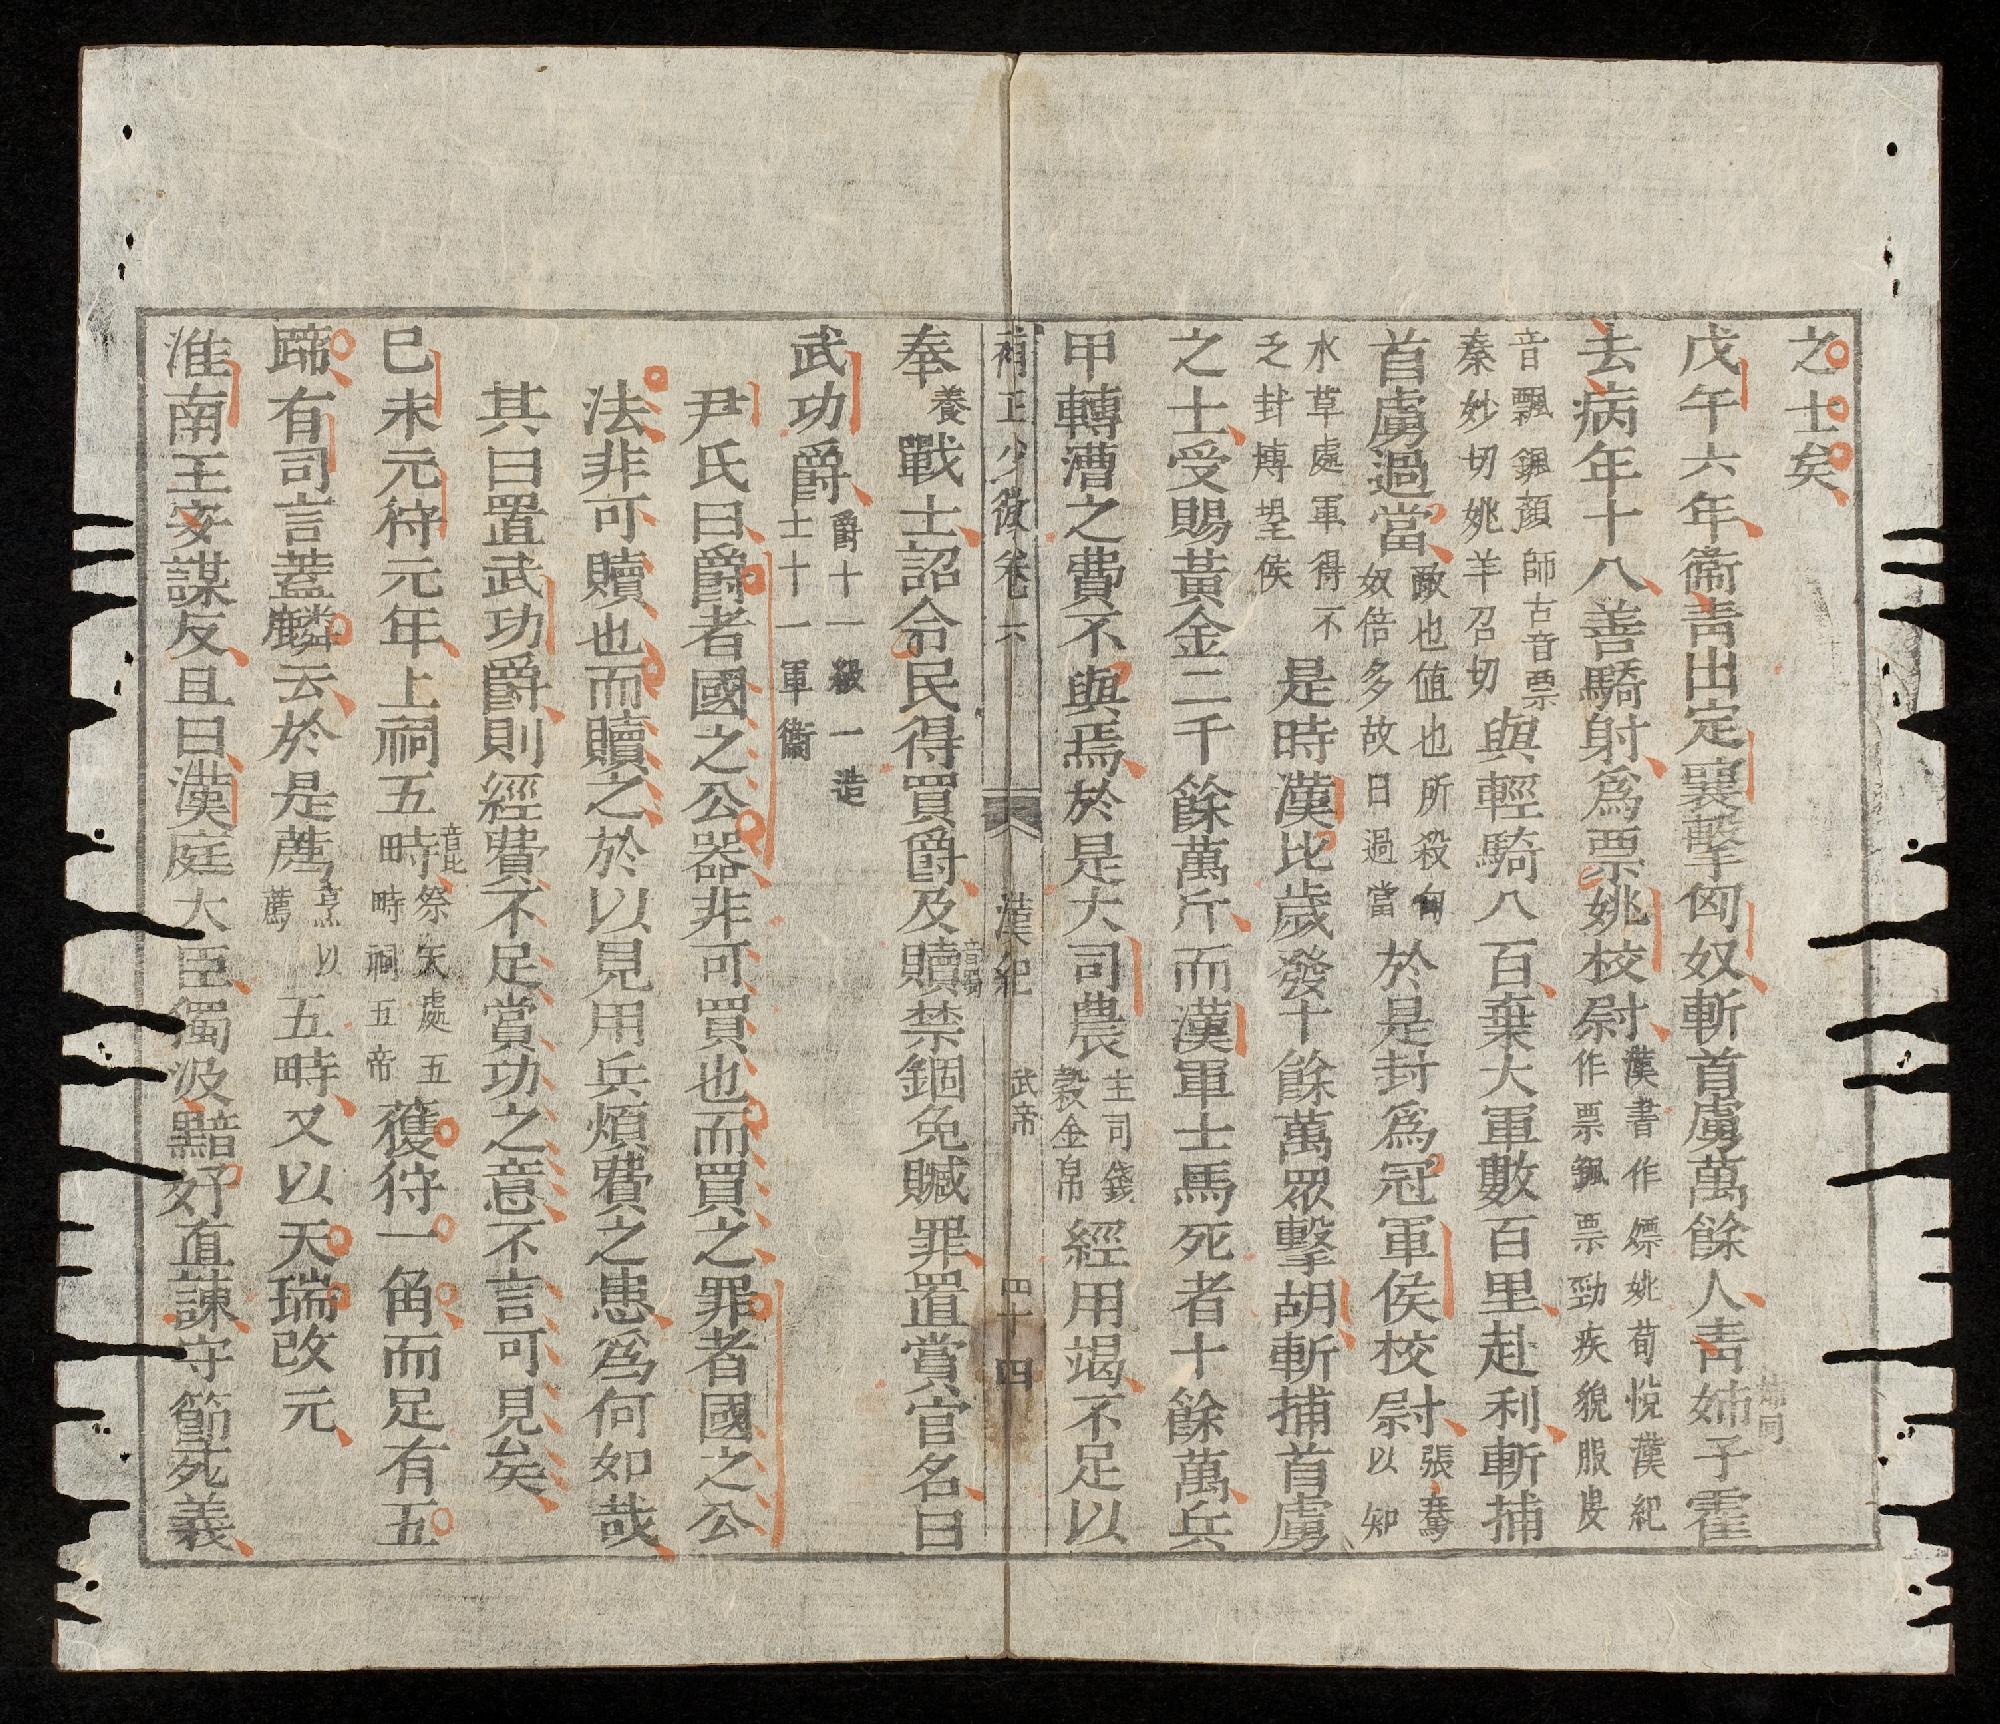 之士矣
戊午六年衞靑出定襄擊匈奴斬首虜萬餘人靑姊子霍
去病年十八善騎射爲票姚校尉漢書作嫖姚荀悅漢紀作票鷂票勁疾貌服虔
音飄鷂顏師古音票秦妙切姚羊召切與輕騎八百棄大軍數百里赴利斬捕
首虜過當敵也值也所殺匈奴倍多故曰過當於是封爲冠軍侯校尉張騫以知
水草處軍得不乏封博望侯是時漢比歲發十餘萬眾擊胡斬捕首虜
之士受賜黃金二千餘萬斤而漢軍士馬死者十餘萬兵
甲轉漕之費不與焉於是大司農主司錢穀金帛經用竭不足以
補正少微卷六 漢紀 武帝 四十四
奉養戰士詔令民得買爵及贖音蜀禁錮免贓罪置賞官名曰
武功爵爵十一級一造士十一軍衞
尹氏曰爵者國之公器非可買也而買之罪者國之公
法非可贖也而贖之於以見用兵煩費之患爲何如哉
其曰置武功爵則經費不足賞功之意不言可見矣
巳未元狩元年上祠五畤音止祭天處五畤祠五帝獲狩一角而足有五
蹄有司言蓋麟云於是薦烹以薦五畤又以天瑞改元
淮南王安謀反且曰漢庭大臣獨汲黯好直諫守節死義